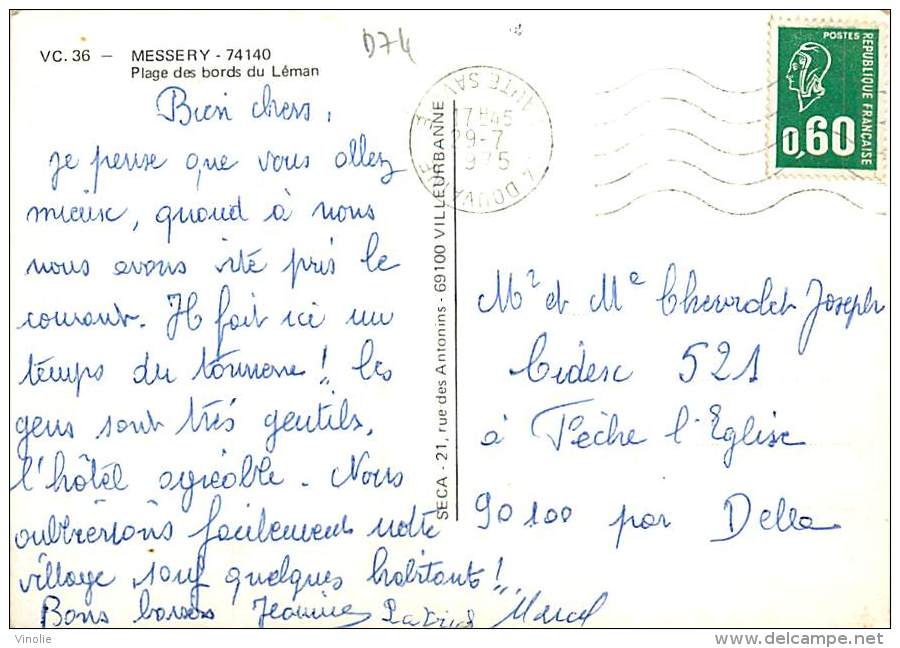 VC. 36 — MESSERY - 74140
Plage des bords du Léman
D74
Bien chers,
je pense que vous allez
mieux, quand à nous
nous avons été pris le
courant. Il fait ici un
temps du tonnerre! les
gens sont très gentils,
l'hôtel agréable. Nous
oublierions facilement notre
village, sauf quelques habitants!..
Bons baisers Jeannine Patrick Marcel
SECA - 21, rue des Antonins - 69100 VILLEURBANNE
17H45
29-7
1975
DOUVAINE
HTE SAVOIE
POSTES
REPUBLIQUE FRANÇAISE
0,60
Mr et Me Chevrolet Joseph
Cidex 521
à Fêche l'Eglise
90100 par Delle
Vinolie
delcampe.net